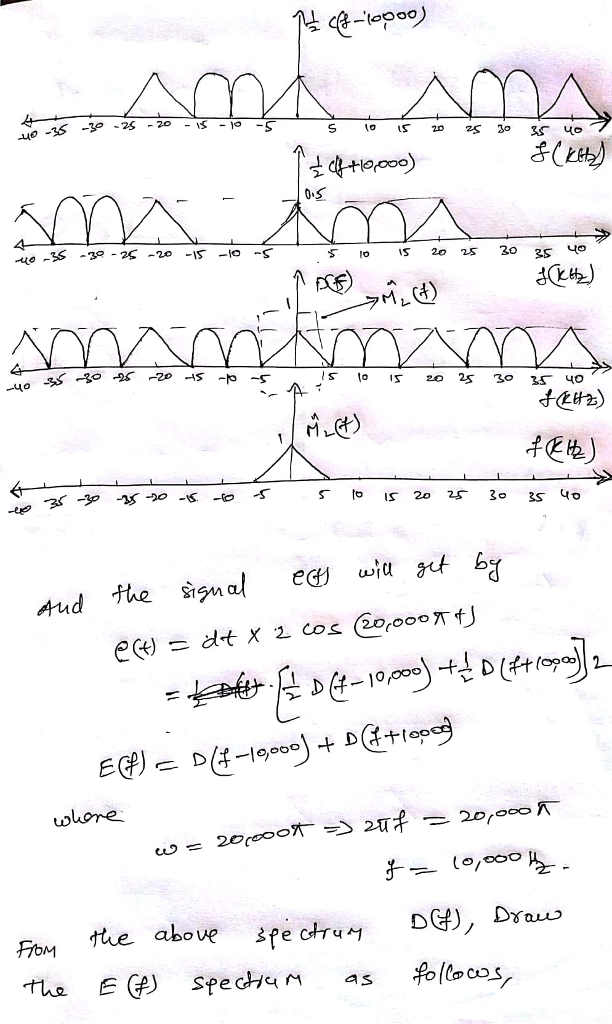 ½ C(f-10,000)
-40 -35 -30 -25 -20 -15 -10 -5 5 10 15 20 25 30 35 40
f(KHz)
½ C(f+10,000)
0.5
-40 -35 -30 -25 -20 -15 -10 -5 5 10 15 20 25 30 35 40
f(KHz)
D(f)
1
M̂L(f)
-40 -35 -30 -25 -20 -15 -10 -5 5 10 15 20 25 30 35 40
f(KHz)
M̂L(f)
1
f(KHz)
-40 -35 -30 -25 -20 -15 -10 -5 5 10 15 20 25 30 35 40
And the signal e(t) will get by
e(t) = dt x 2 cos (20,000πt)
= [½ D(f-10,000) + ½ D(f+10,000)] 2
E(f) = D(f-10,000) + D(f+10,000)
where
ω = 20,000π => 2πf = 20,000π
f = 10,000 Hz.
From the above spectrum D(f), Draw
the E(f) spectrum as follows,